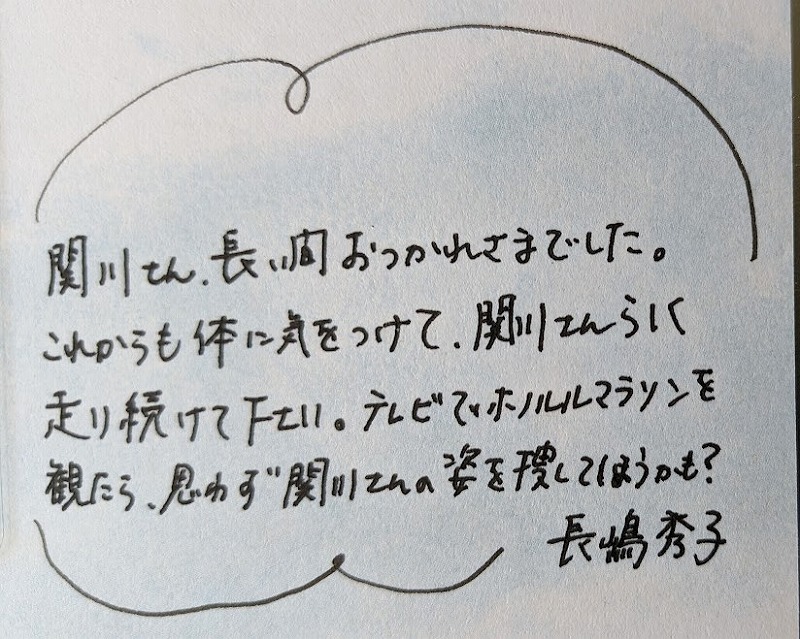 関川さん、長い間おつかれさまでした。
これからも体に気をつけて、関川さんらしく
走り続けて下さい。テレビでホノルルマラソンを
観たら、思わず関川さんの姿を捜してしまうかも?
長嶋秀子